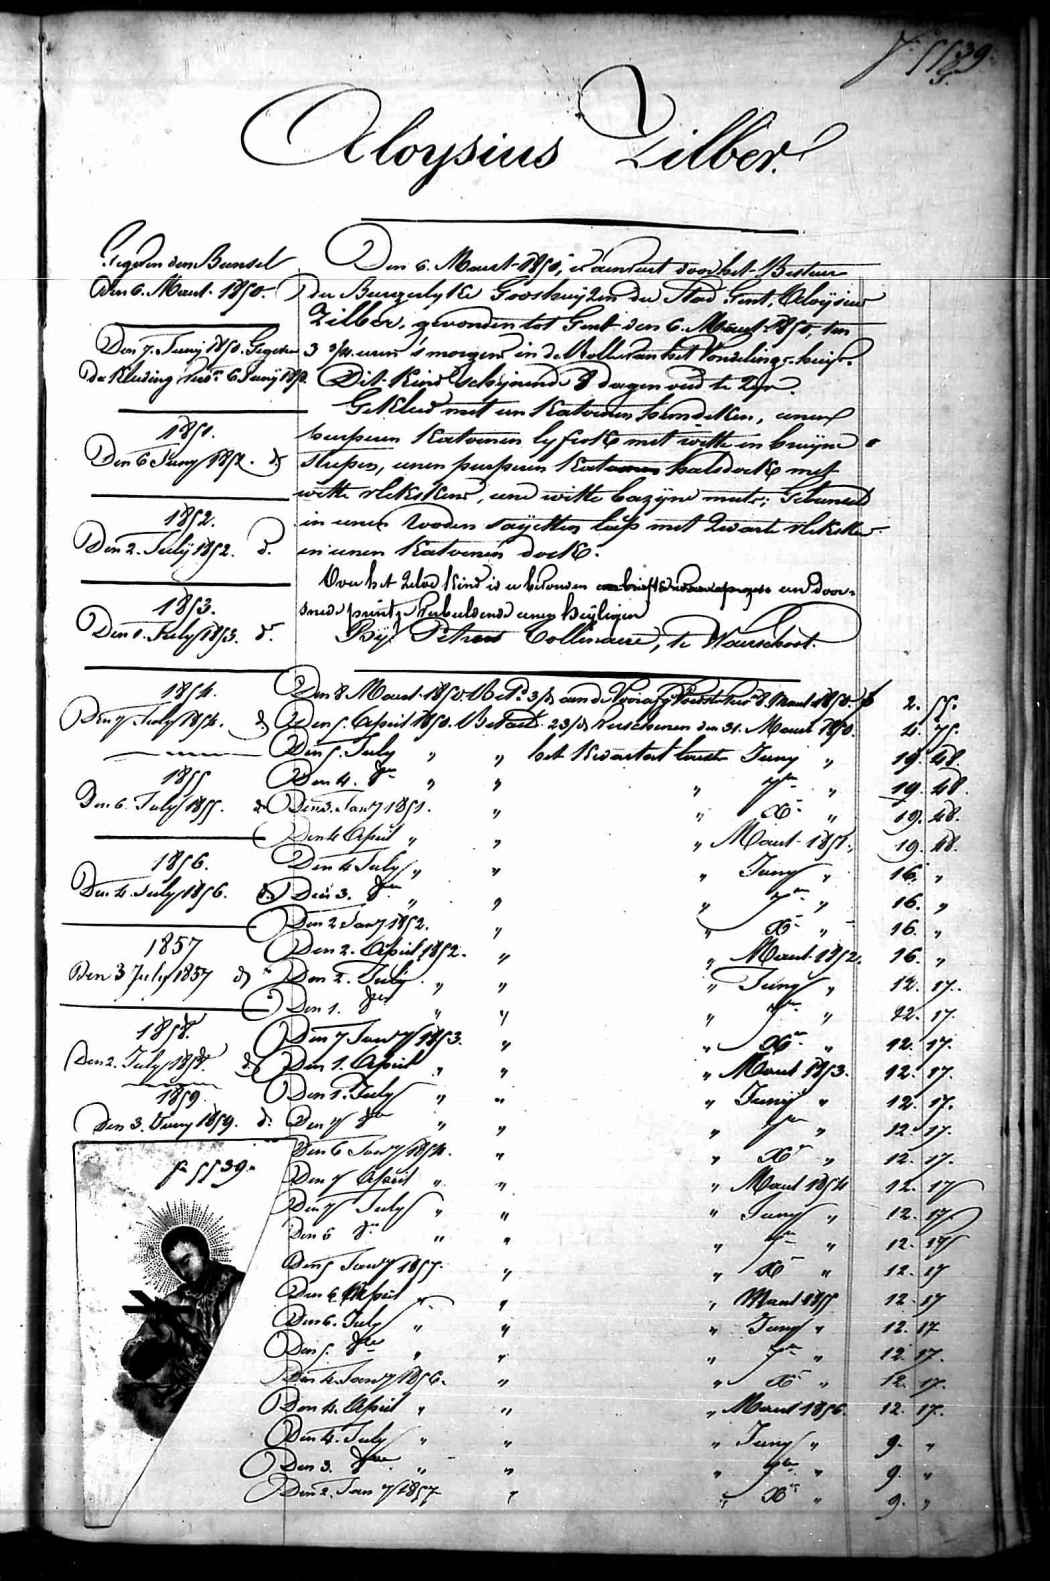 5539
Aloysius Zilber.
Gegeven den Bunsel
Den 6. Maart 1850.
Den 7. Juny 1850. Gegeven
de Kleeding 6 Juny 1850
1851.
Den 6 Juny 1851. d
1852.
Den 2. July 1852. d.
1853.
Den 1. July 1853. d.
1854.
Den 7 July 1854. d
1855
Den 6. July 1855. d
1856.
Den 4. July 1856. d.
1857
Den 3 July 1857 d
1858.
Den 2. July 1858. d.
1859.
Den 3. Juny 1859. d.
5539.
Den 6. Maart 1850, is aenveert door het Bestuer
der Burgerlyke Godshuyzen der Stad Gent, Aloysius
Zilber, gevonden tot Gent den 6. Maart 1850, ten
3 3/4 uren 's morgens in de Rolle van het Vondelings-huis.
Dit Kind schynende 8 dagen oud te zyn.
Gekleed met een Katoenen hemdeken, eenen
purperen Katoenen lyfrok met witte en bruyne
strepen, eenen purperen Katoenen halsdoek met
witte vlekskens, eene witte bazyne muts; Gebunseld
in eenen rooden sayetten lap met zwarte vlekken
en eenen Katoenen doek.
Over het zelve Kind is er bevonden een door-
sneden printje verbeeldende eenen heyligen
By Petrus Collinaire, te Waerschoot.
Den 8. Maart 1850 Maart 1850. 2. 55.
Den 5. April 1850. Betaeld 23/d verschenen den 31. Maart 1850. 4. 75.
Den 5. July " " het Kwartael Juny " 19. 48.
Den 4. 8re " " " 7re " 19. 48.
Den 3. Jany 1851. " " Xre " 19. 48.
Den 4 April " " " Maart 1851. 19. 48.
Den 4 July " " " Juny " 16. "
Den 3. 8re " " " 7re " 16. "
Den 2 Jany 1852. " " Xre " 16. "
Den 2. April 1852. " " Maart 1852. 16. "
Den 2. July " " " Juny " 12. 17.
Den 1. 8re " " " 7re " 12. 17.
Den 7 Jany 1853. " " Xre " 12. 17.
Den 1. April " " " Maart 1853. 12. 17.
Den 1. July " " " Juny " 12. 17.
Den 7 8re " " " 7re " 12. 17.
Den 6 Jany 1854. " " Xre " 12. 17.
Den 7 April " " " Maart 1854 12. 17
Den 7 July " " " Juny " 12. 17
Den 6 8re " " " 7re " 12. 17
Den 5 Jany 1855. " " Xre " 12. 17
Den 6 April " " " Maart 1855 12. 17
Den 6. July " " " Juny " 12. 17
Den 5. 8re " " " 7re " 12. 17.
Den 4. Jany 1856. " " Xre " 12. 17.
Den 4. April " " " Maart 1856. 12. 17.
Den 4. July " " " Juny " 9. "
Den 3. 8re " " " 7re " 9. "
Den 2. Jany 1857 " " Xre " 9. "